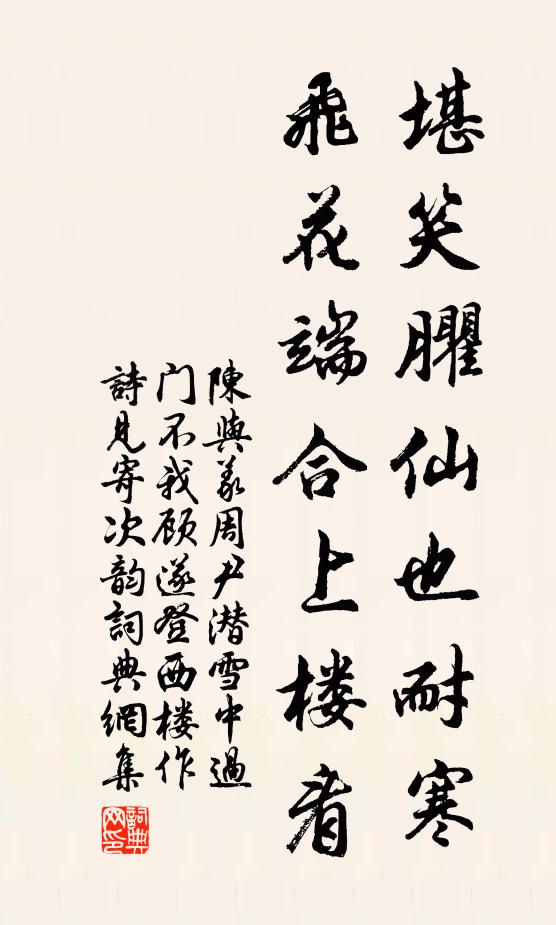 堪笑臞仙也耐寒
飛花端合上楼看
陳與義周尹潜雪中過
门不我顾遂登西楼作
詩見寄次韵詞典網集
詞典
网印